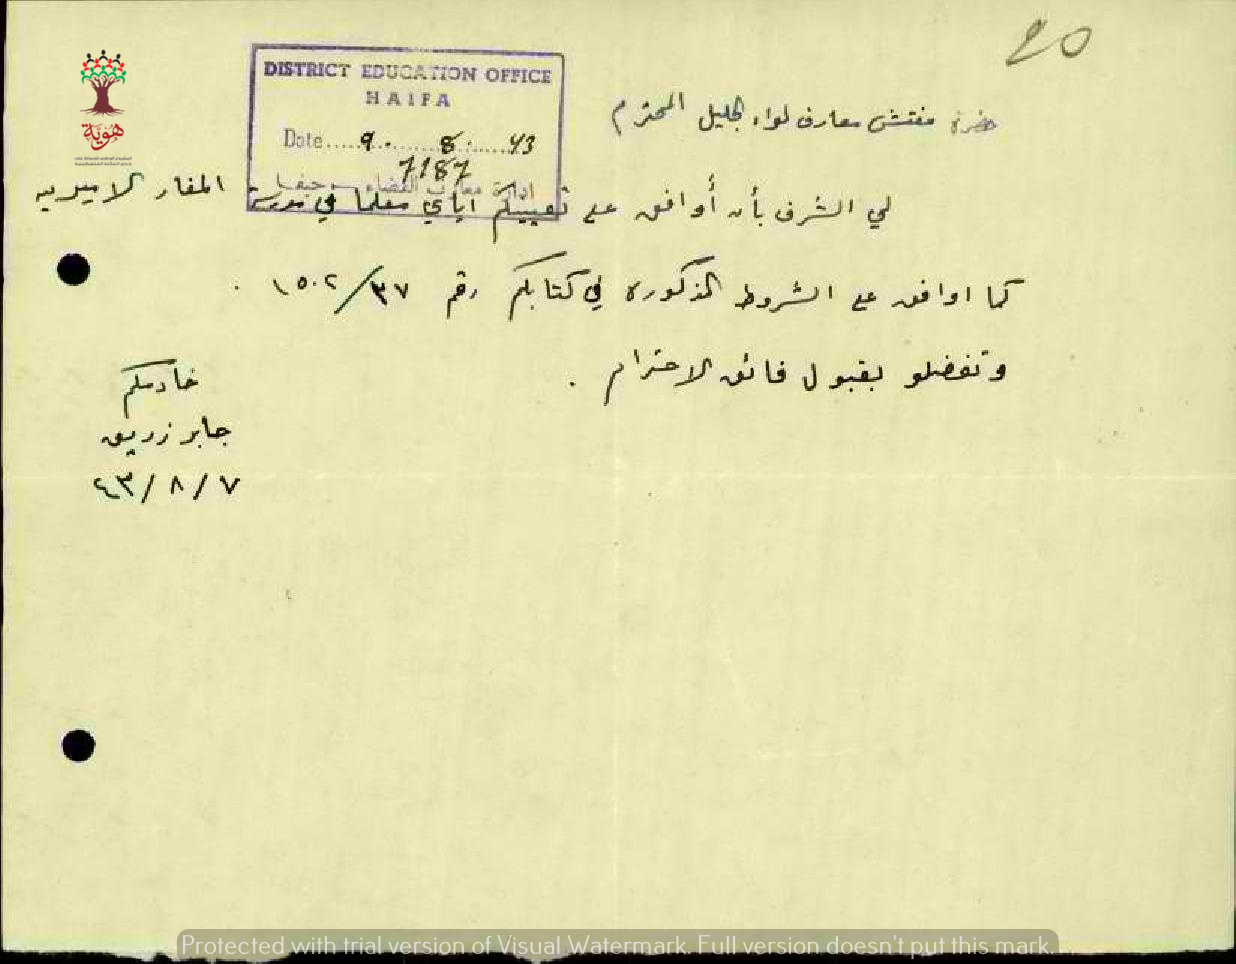 20
هوية
DISTRICT EDUCATION OFFICE
HAIFA
Date.....9........8.......43
7187
ادارة معارف القضاء - حيفا
حضرة مفتش معارف لواء الجليل المحترم
لي الشرف بأن أوافق على تعيينكم اياي معلما في مدرسة المغار الاميريه
كما اوافق على الشروط المذكوره في كتابكم رقم ٣٧/١٥٠٢ .
وتفضلو بقبول فائق الاحترام .
خادمكم
جابر زريق
٧/٨/٤٣
Protected with trial version of Visual Watermark. Full version doesn't put this mark.